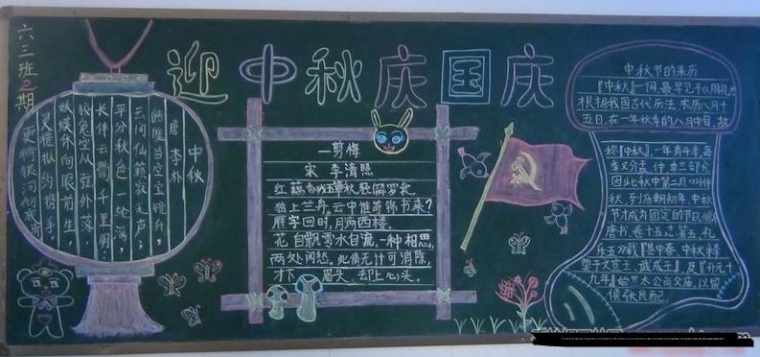 六三班2期
迎中秋庆国庆
中秋
唐 李朴
皓魄当空宝镜升，
云间仙籁寂无声，
平分秋色一轮满，
长伴云衢千里明，
狡兔空从弦外落，
妖蟆休向眼前生，
灵槎拟约携手，
更待银河彻底清
一剪梅
宋 李清照
红藕香残玉簟秋，轻解罗裳，
独上兰舟，云中谁寄锦书来？
雁字回时，月满西楼。
花自飘零水自流，一种相思，
两处闲愁，此情无计可消除，
才下眉头，却上心头。
中秋节的来历
『中秋』一词，最早见于《周礼》
根据我国古代历法，农历八月十
五日，在一年秋季的八月中旬，故
称『中秋』一年有四季，每
季又分孟、仲、季三部分
因此秋中第二月叫仲
秋，到唐朝初年，中秋
节才成为固定的节日
唐书·卷十五志第五·礼
乐五》载『其中春、中秋释
奠于文宣王、武成王』及『开元十
九年，始置太公尚父庙，以留
侯张良配。